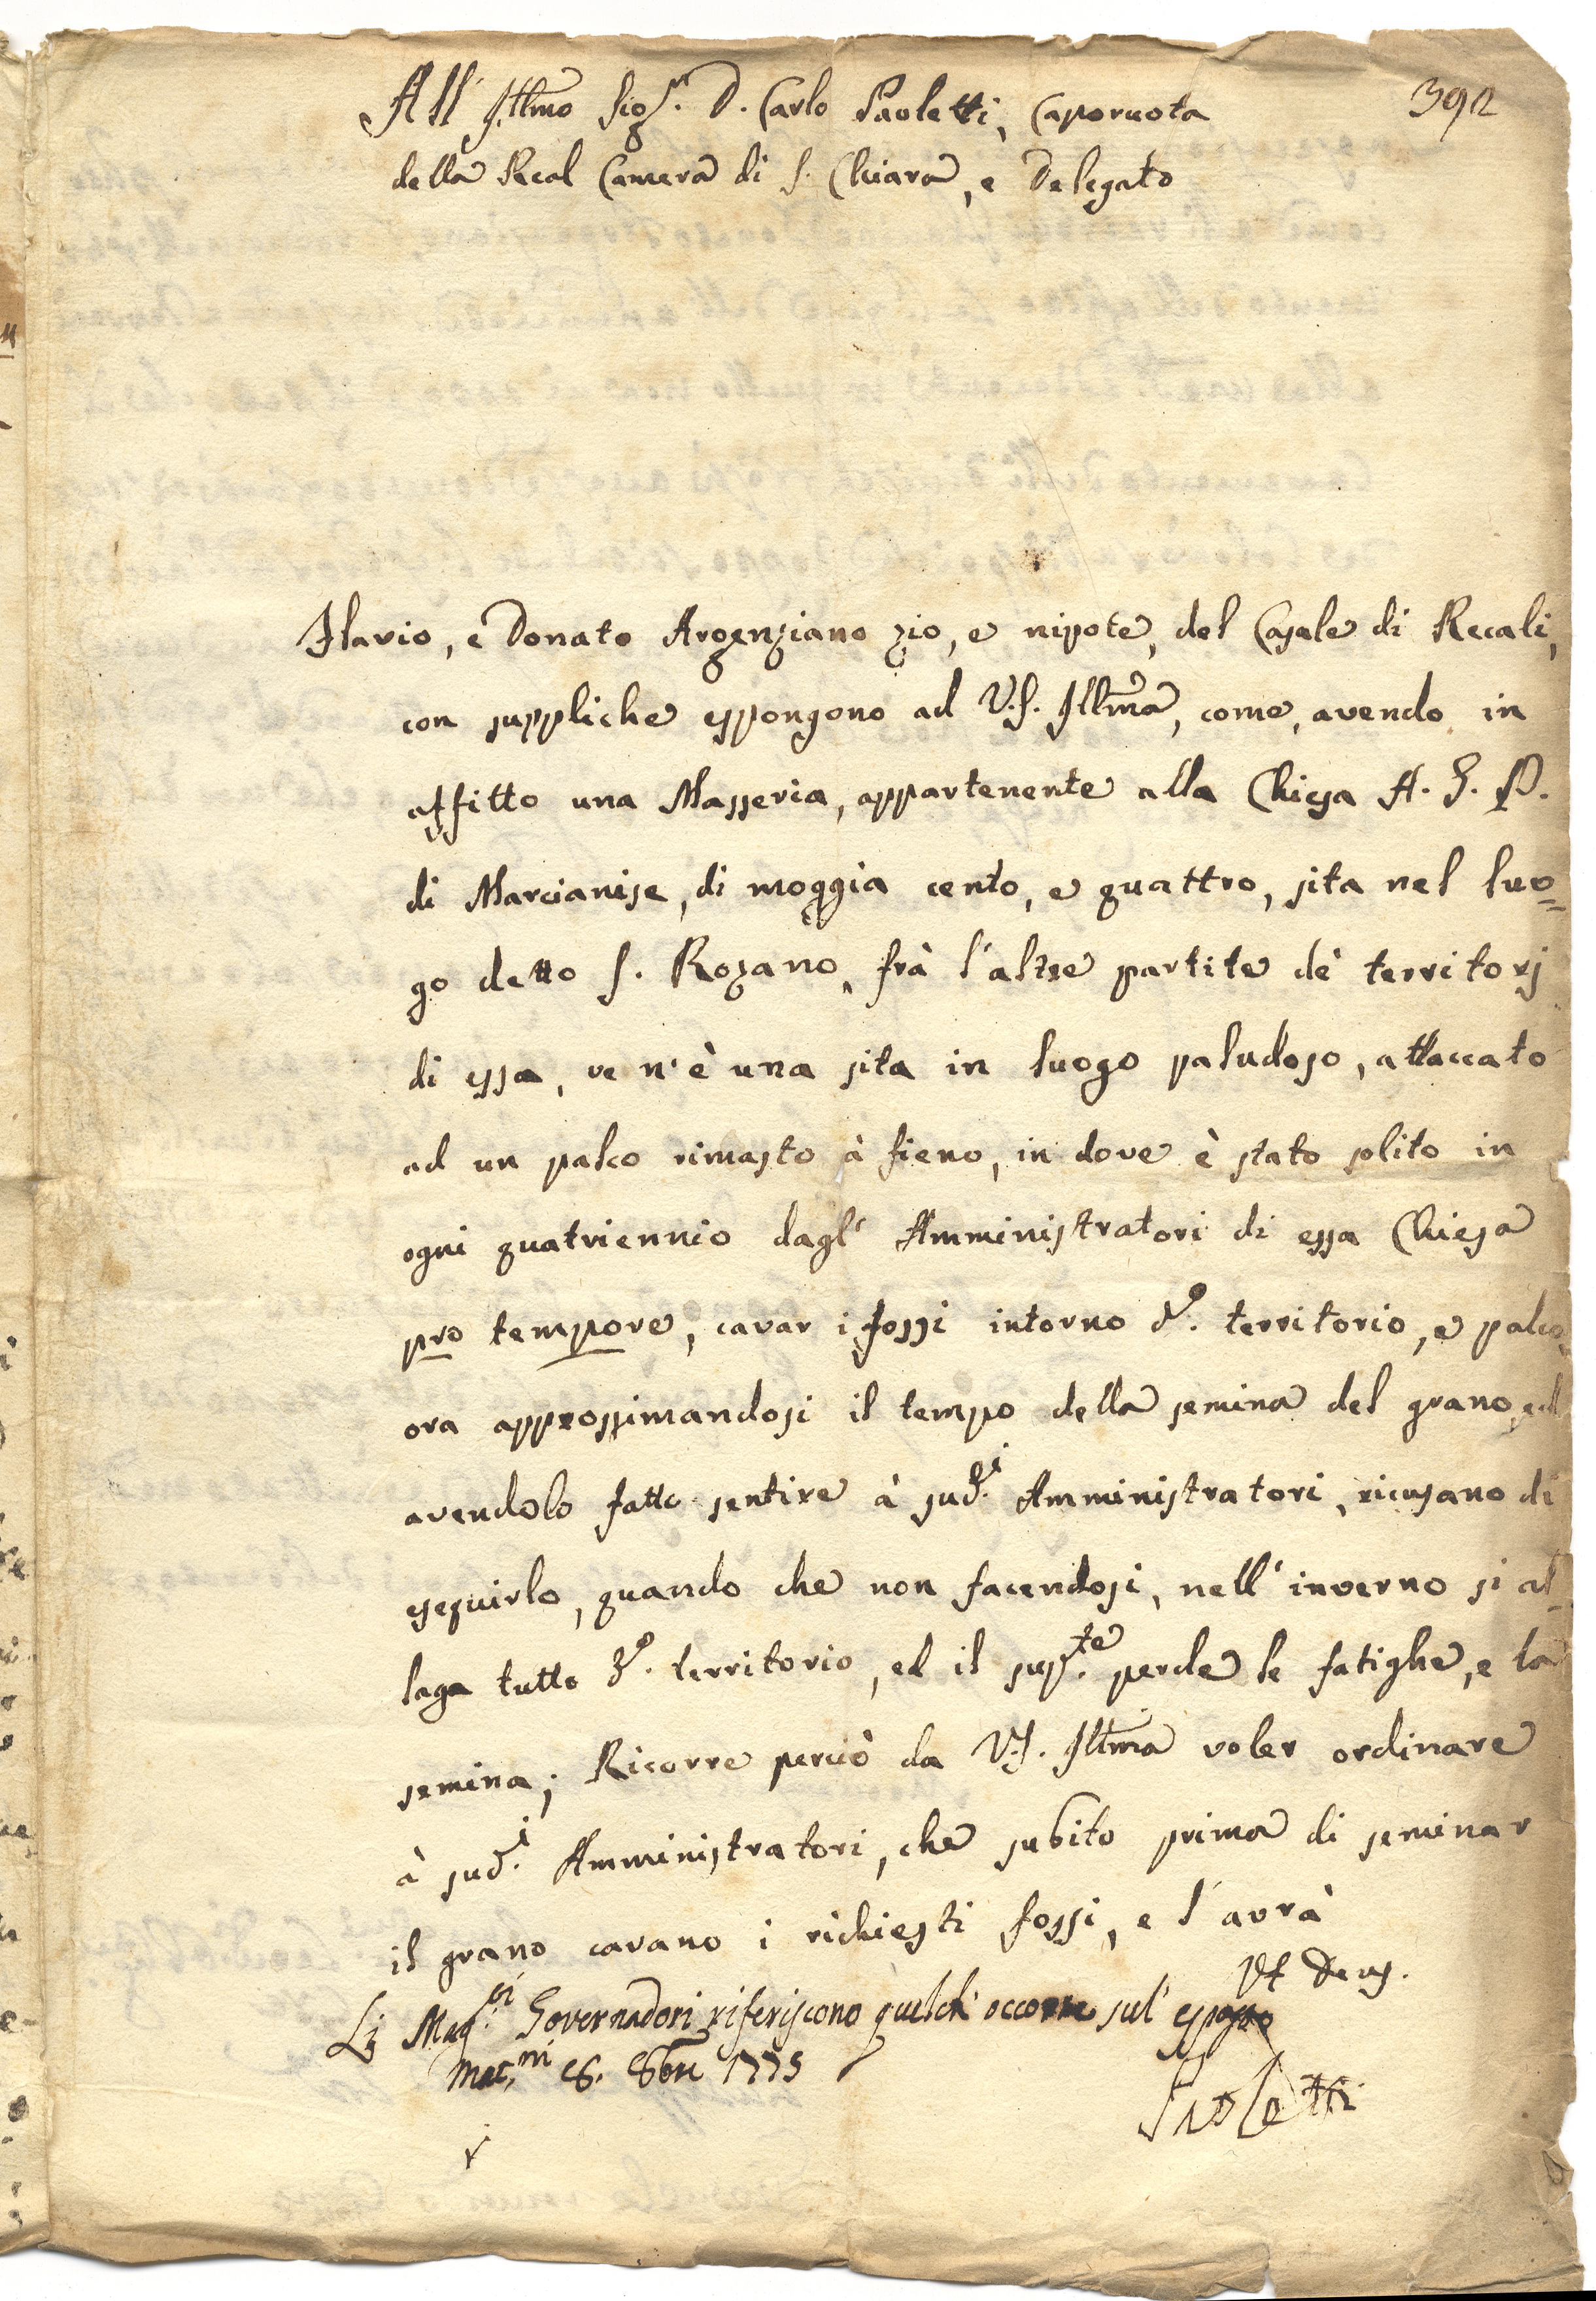 392
All' Illmo Sig.r D. Carlo Paoletti, Caporuota
della Real Camera di S. Chiara, e Delegato
Flavio, e Donato Argenziano zio, e nipote, del Casale di Recali,
con suppliche espongono ad V.S. Illma, come, avendo in
affitto una Masseria, appartenente alla Chiesa A. G. P.
di Marcianise, di moggia cento, e quattro, sita nel luo=
go detto S. Rozano, frà l'altre partite de' territorj
di essa, ve n'è una sita in luogo paludoso, attaccato
ad un palco rimasto à fieno, in dove è stato solito in
ogni quatriennio dagl' Amministratori di essa Chiesa
pro tempore, cavar i fossi intorno d.o territorio, e palco,
ora approssimandosi il tempo della semina del grano, ed
avendolo fatto sentire à sud.i Amministratori, ricusano di
eseguirlo, quando che non facendosi, nell' inverno si al=
laga tutto d.o territorio, ed il sup.te perde le fatighe, e la
semina; Ricorre perciò da V.S. Illma voler ordinare
à sud.i Amministratori, che subito prima di seminar
il grano cavano i richiesti fossi, e l'avrà
Ut Deus.
Li Mag.ci Governadori riferiscono quel ch' occorre sul' esposto
Mac.ni 8bre 1775
Paoletti